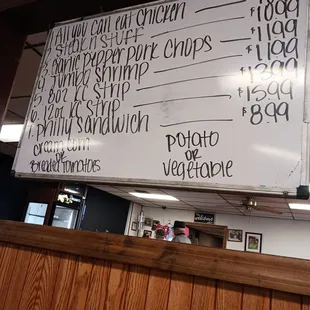 1. All you can eat Chicken
2. Steak n Stuff
3. Garlic Pepper pork Chops
4. Jumbo Shrimp
5. 8oz KC Strip
6. 12oz KC Strip
7. Philly Sandwich
$1199
$1399
$1599
$899
cream corn
OR
Breaded tomatoes
potato
OR
vegetable